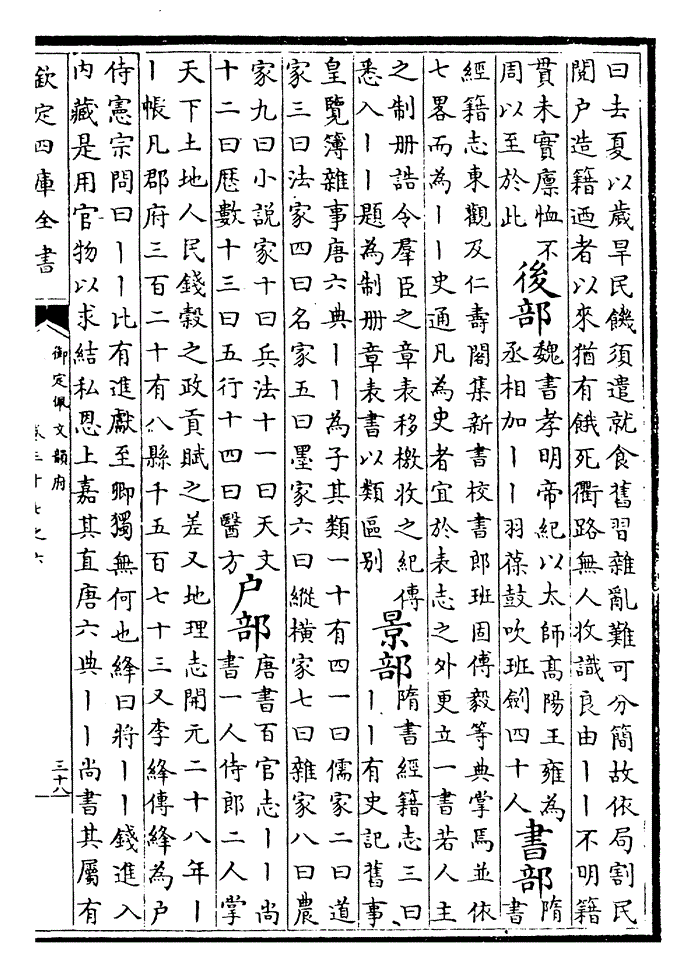 曰去夏以歲旱民饑須遣就食舊習雜亂難可分簡故依局割民
閱户造籍迺者以來猶有餓死衢路無人收識良由丨丨不明籍
貫未實廪恤不
周以至於此
後部
魏書孝明帝紀以太師髙陽王雍為
丞相加丨丨羽葆鼓吹班劍四十人
書部
隋
書
經籍志東觀及仁壽閣集新書校書郎班固傅毅等典掌焉並依
七畧而為丨丨史通凡為史者宜於表志之外更立一書若人主
之制册誥令羣臣之章表移檄收之紀傳
悉入丨丨題為制册章表書以類區别
景部
隋書經籍志三曰
丨丨有史記舊事
皇覽簿雜事唐六典丨丨為子其類一十有四一曰儒家二曰道
家三曰法家四曰名家五曰墨家六曰縱橫家七曰雜家八曰農
家九曰小說家十曰兵法十一曰天文
十二曰歴數十三曰五行十四曰醫方
户部
唐書百官志丨丨尚
書一人侍郎二人掌
天下土地人民錢穀之政貢賦之差又地理志開元二十八年丨
丨帳凡郡府三百二十有八縣千五百七十三又李絳傳絳為户
侍憲宗問曰丨丨比有進獻至卿獨無何也絳曰將丨丨錢進入
内藏是用官物以求結私恩上嘉其直唐六典丨丨尚書其屬有
欽定四庫全書
御定佩文韻府
卷三十七之六
三十八